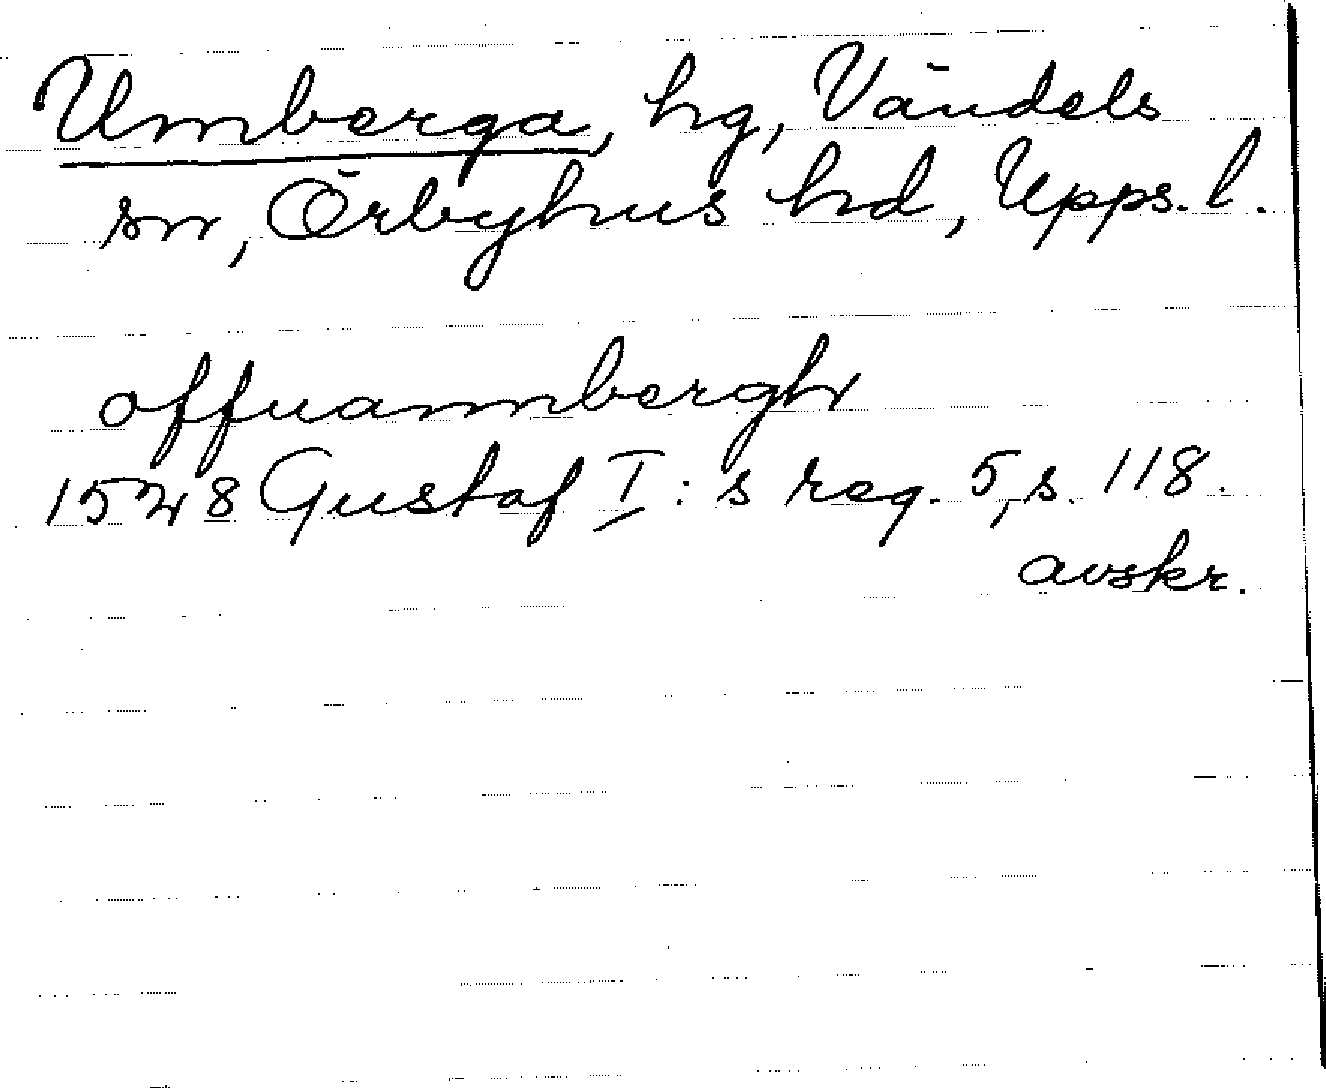 Umberga, hg, Vändels
sn, Örbyhus hd, Upps. l.
offuannbergh
1528 Gustaf I:s reg. 5, s. 118.
avskr.